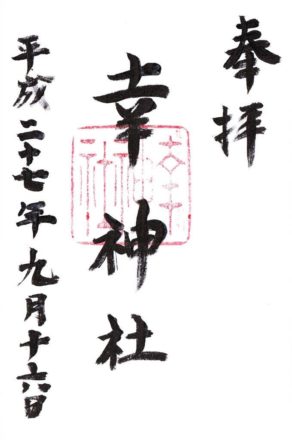 奉拝
幸神社
平成二十七年九月十六日